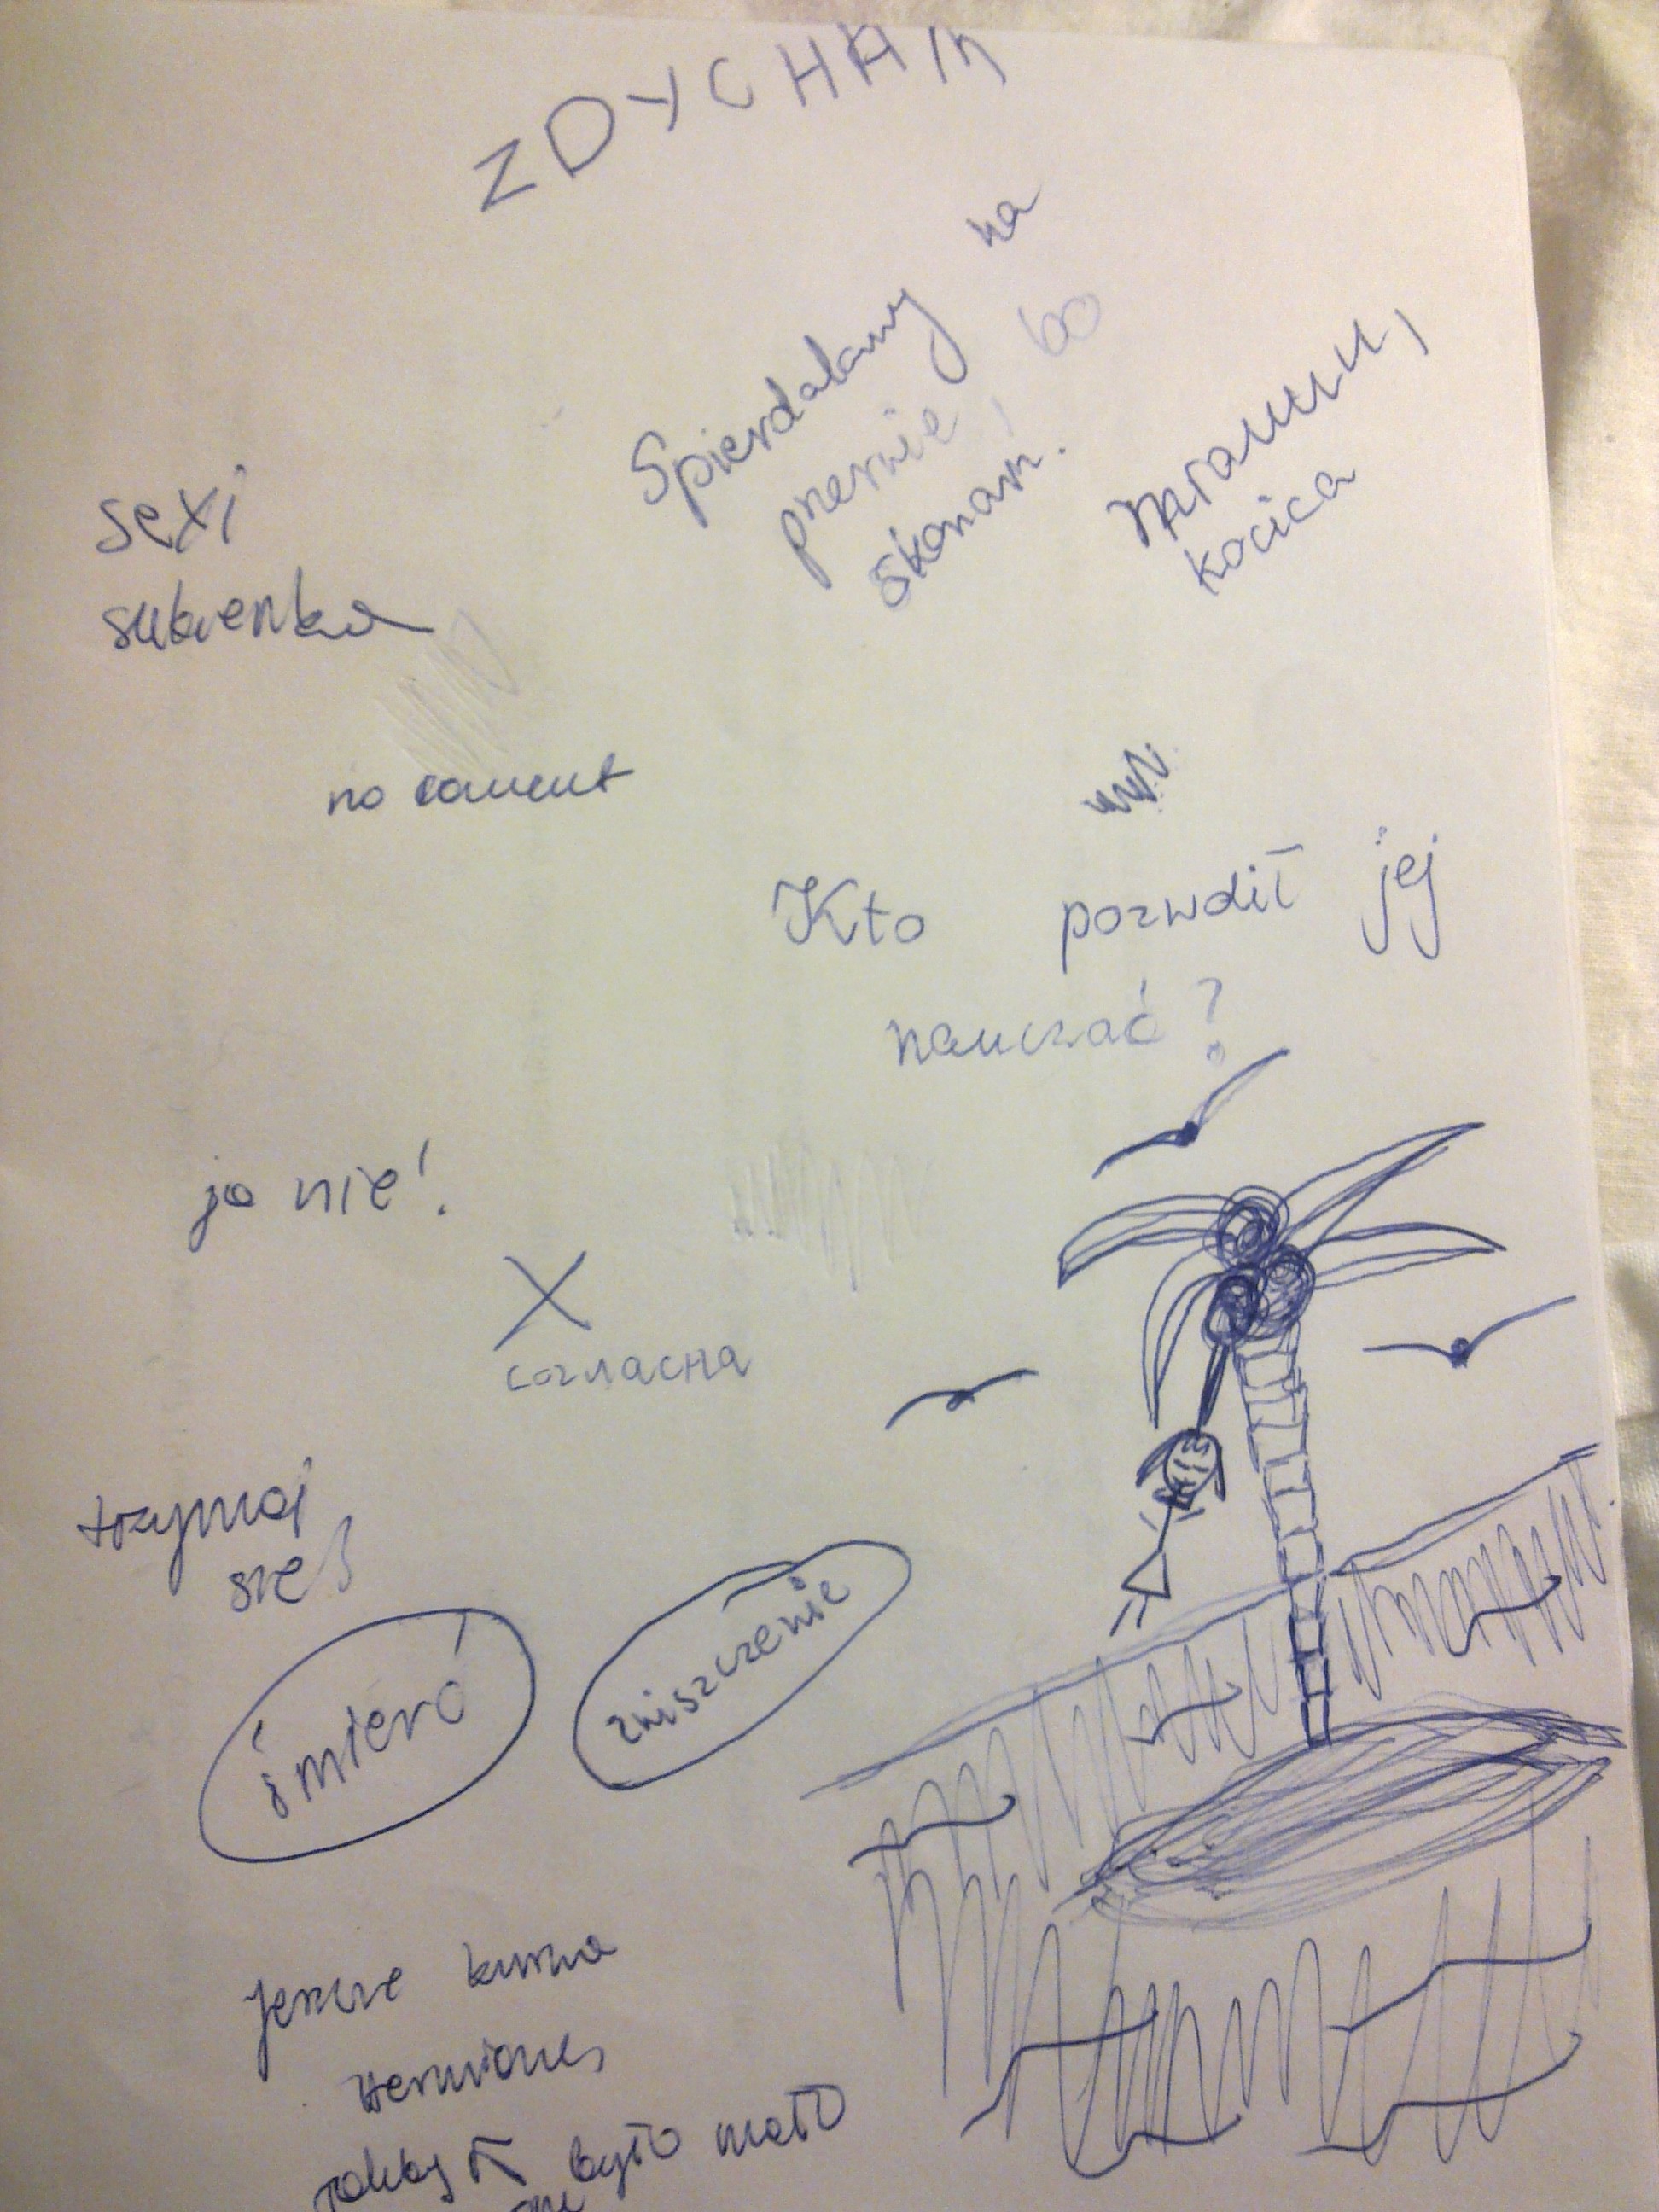 ZDYCHAM
Spierdalamy na
przerwie, bo
skonam.
mrauuu,
kocica
sexi
sukienka
no coment
Kto pozwolił jej
nauczać?
ja nie!
X
trzymaj
się!
śmierć
zniszczenie
jeszcze kurwa
jakby
było mało